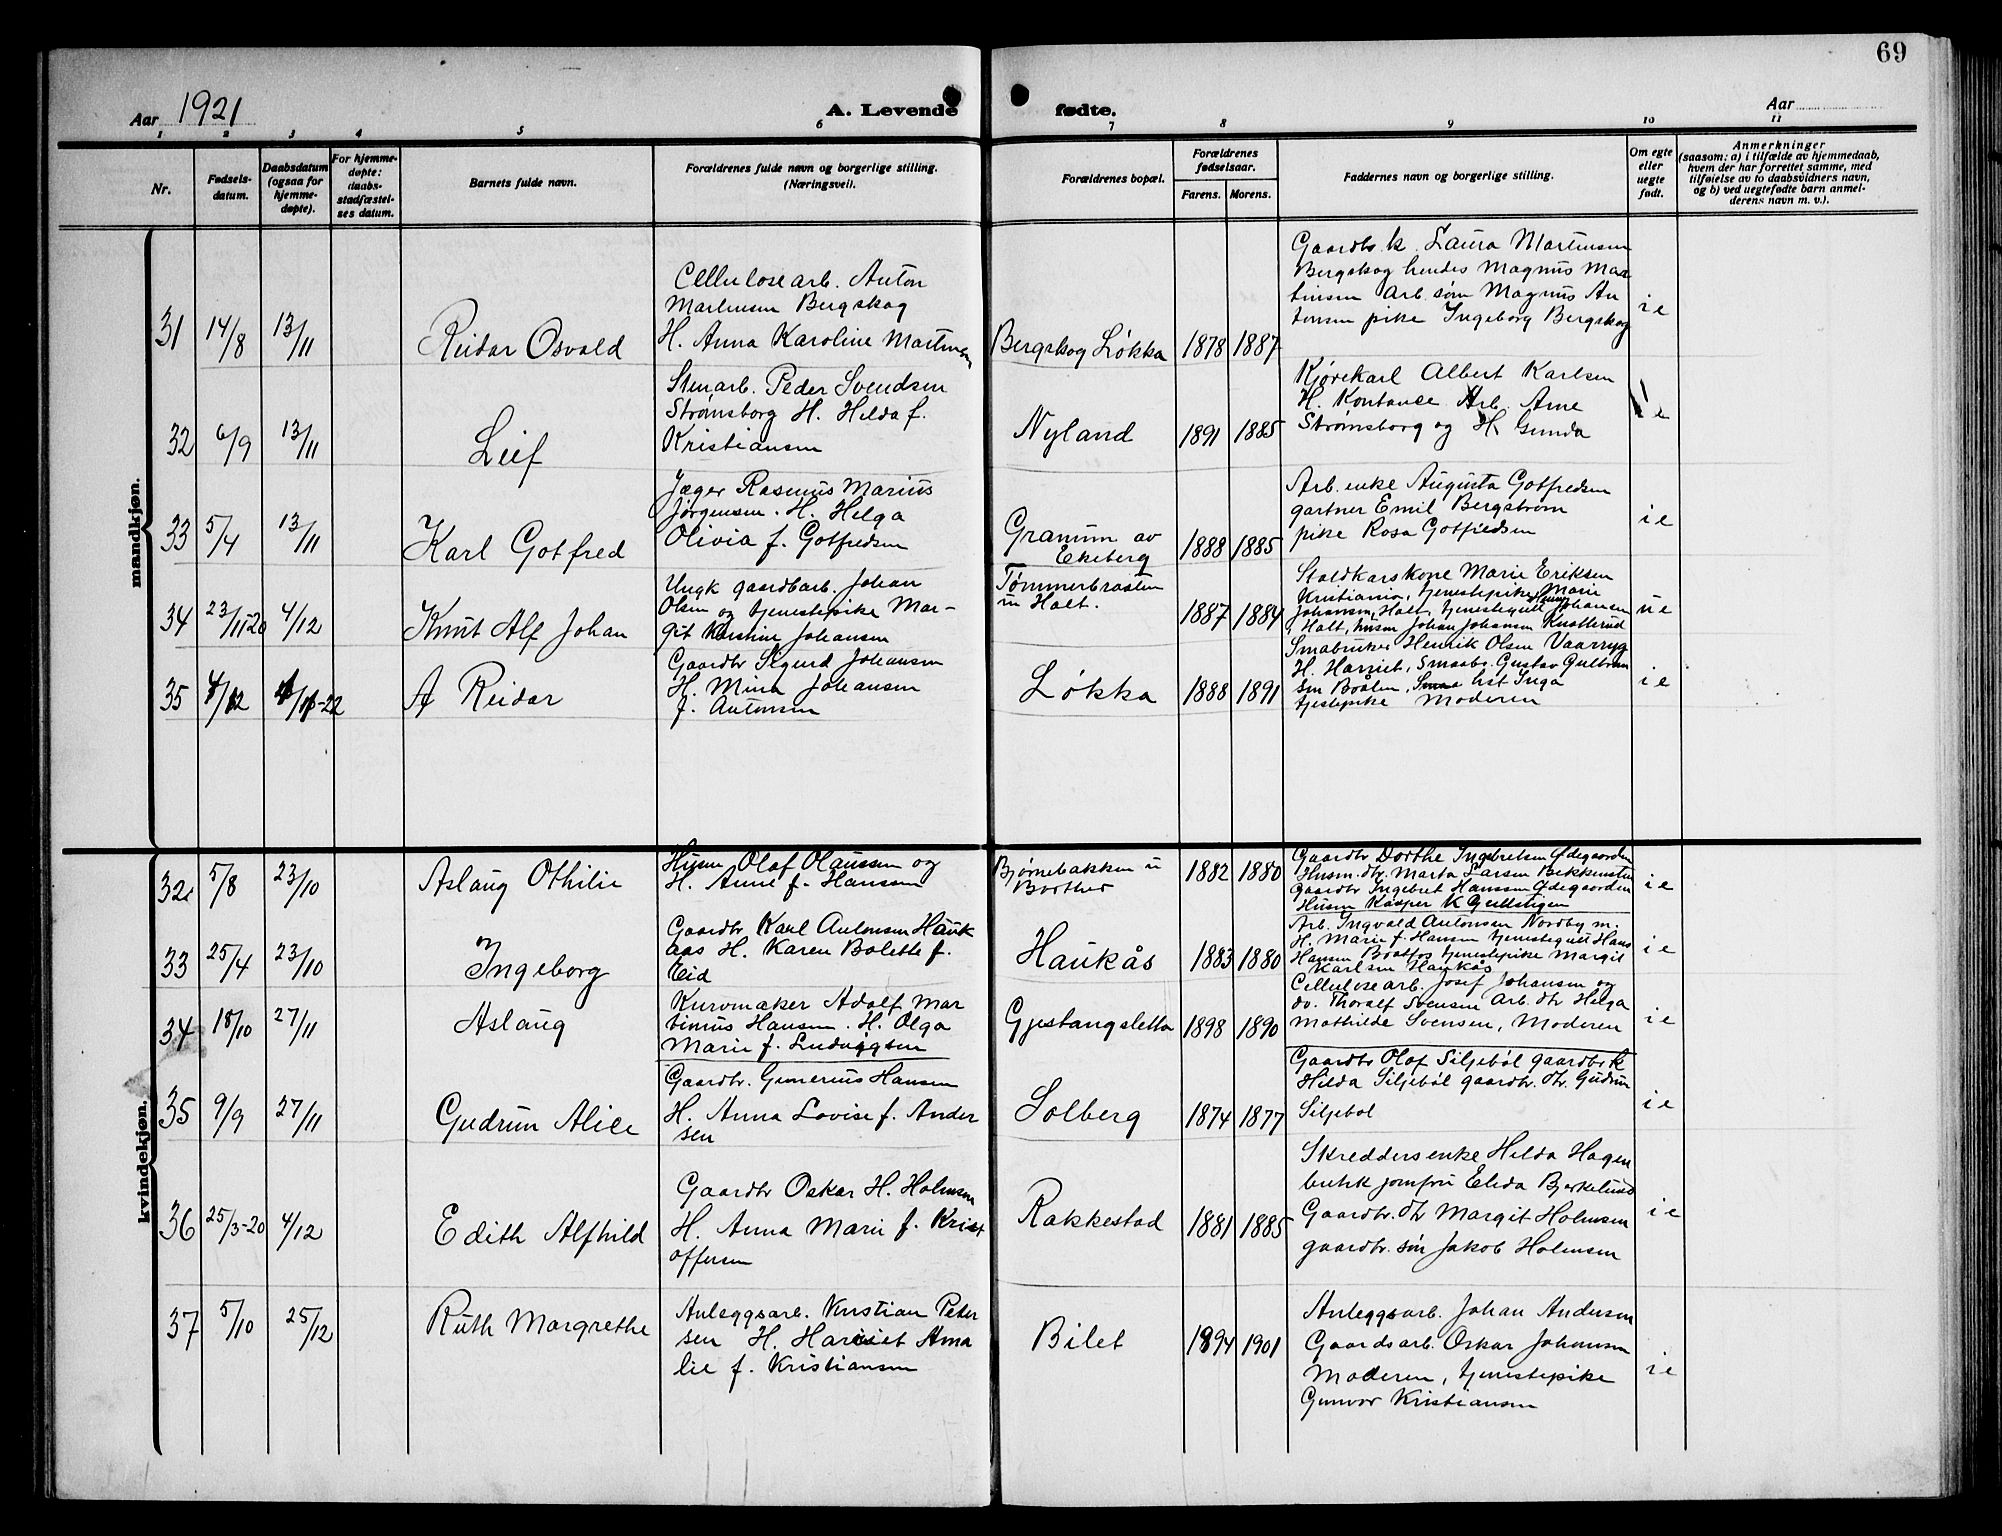 69
Aar 1921
A. Levende fødte.
Aar
1 2 3 4 5 6 7 8 9 10 11
Nr.
Fødsels-
datum.
Daabsdatum
(ogsaa for
hjemme-
døpte).
For hjemme-
døpte:
daabs-
stadfæstel-
ses datum.
Barnets fulde navn.
Forældrenes fulde navn og borgerlige stilling.
(Næringsvei).
Forældrenes bopæl.
Forældrenes
fødselsaar.
Farens. Morens.
Faddernes navn og borgerlige stilling.
Om egte
eller
uegte
født.
Anmerkninger
(saasom: a) i tilfælde av hjemmedaab,
hvem der har forrettet samme, med
tilføielse av to daabsvidners navn,
og b) ved uegtefødte barn anmel-
derens navn m. v.).
mandkjøn.
31 14/8 13/11
Reidar Osvald
Cellulosearb. Anton
Martinsen Bergskog
H. Anna Karoline Martinsen
Bergskog Løkka 1878 1887
Gaardbr. k. Laura Martinsen
Bergskog hendes Magnus Mar
tinsen Arb. søn Magnus An
tonsen pike Ingeborg Bergskog
i e
32 6/9 13/11
Leif
Stenarb. Peder Svendsen
Strømsborg H. Hilda f.
Kristiansen
Nyland 1891 1885
Kjørekarl Albert Karlsen
H. Kontance Arb. Arne
Strømsborg og H. Gunda
i e
33 5/4 13/11
Karl Gotfred
Jæger Rasmus Marius
Jörgensen. H. Helga
Olivia f. Gotfredsen
Granum av
Ekeberg 1888 1885
Arb. enke Augusta Gotfredsen
gartner Emil Bergstrøm
pike Rosa Gotfredsen
i e
34 23/11-20 4/12
Knut Alf Johan
Ungk gaardbarb. Johan
Olsen og tjenestepike Mar-
git Kristine Johansen
Tømmerbraaten
u Holt. 1887 1884
Staldkarskone Marie Eriksen
Kristiania, tjenestepike Marie
Johansen, Holt, tjenestegutt Johansen
Holt, husm Johan Johansen Knatterud
u e
35
A Reidar
Gaardbr Sigurd Johansen
H. Mina Johansen
f. Antonsen
Løkka 1888 1891
Smabruker Henrik Olsen Vaarryg
H. Harriet, Smaabr. Gustav Gulbran
sen Braaten, hst Inga
tjestepike Moderen
i e
kvindekjøn.
32 5/8 23/10
Aslaug Othilie
Husm Olaf Olaussen og
H. Anne f. Hanssen
Bjørnebakken u
Borther 1882 1880
Gaardbr Dorthe Ingebretsen Ødegaarden
Husm. dtr. Marta Larsen Bekkensten
Gaardbr Ingebret Hanssen Ødegaarden
Husm Kasper K Gullstigen
i e
33 25/4 23/10
Ingeborg
Gaardbr Karl Antonsen Hauk
aas H. Karen Bolette f.
Eid
Haukås 1883 1880
Arb. Ingvald Antonsen Nordby m.
H. Marie f. Hansen tjenestegutt Hans
Hansen Bootfos tjenestepike Margit
Karlsen Haukås
i e
34 18/10 27/11
Aslaug
Kurvmaker Adolf Mar
tinius Hansen. H. Olga
Marie f. Ludvigsen
Gjestangsletta 1898 1890
Cellulosearb. Josef Johansen og
do. Thoralf Svensen Arb. dtr Helga
Mathilde Svensen, Moderen
i e
35 9/9 27/11
Gudrun Alice
Gaardbr. Gunerius Hansen
H. Anna Lovise f. Ander
sen
Solberg 1874 1877
Gaardbr Olaf Siljebøl gaardbr k
Hilda Siljebøl gaardbr. dtr. Gudrun
Siljebøl
i e
36 25/3-20 4/12
Edith Alfhild
Gaardbr Oskar H. Holmsen
H. Anna Marie f. Krist
offersen
Rakkestad 1881 1885
Skreddersenke Hilda Hagen
butik jomfru Elida Bjerkelund
Gaardbr. dtr Margit Holmsen
gaardbr. søn Jakob Holmsen
i e
37 5/10 25/12
Ruth Margrethe
Anleggsarb. Kristian Peter
sen H. Harriet Ama
lie f. Kristiansen
Bilet 1894 1901
Anleggsarb. Johan Andersen
Gaardsarb. Oskar Johansen
Moderen, tjenestepike
Gunvor Kristiansen
i e